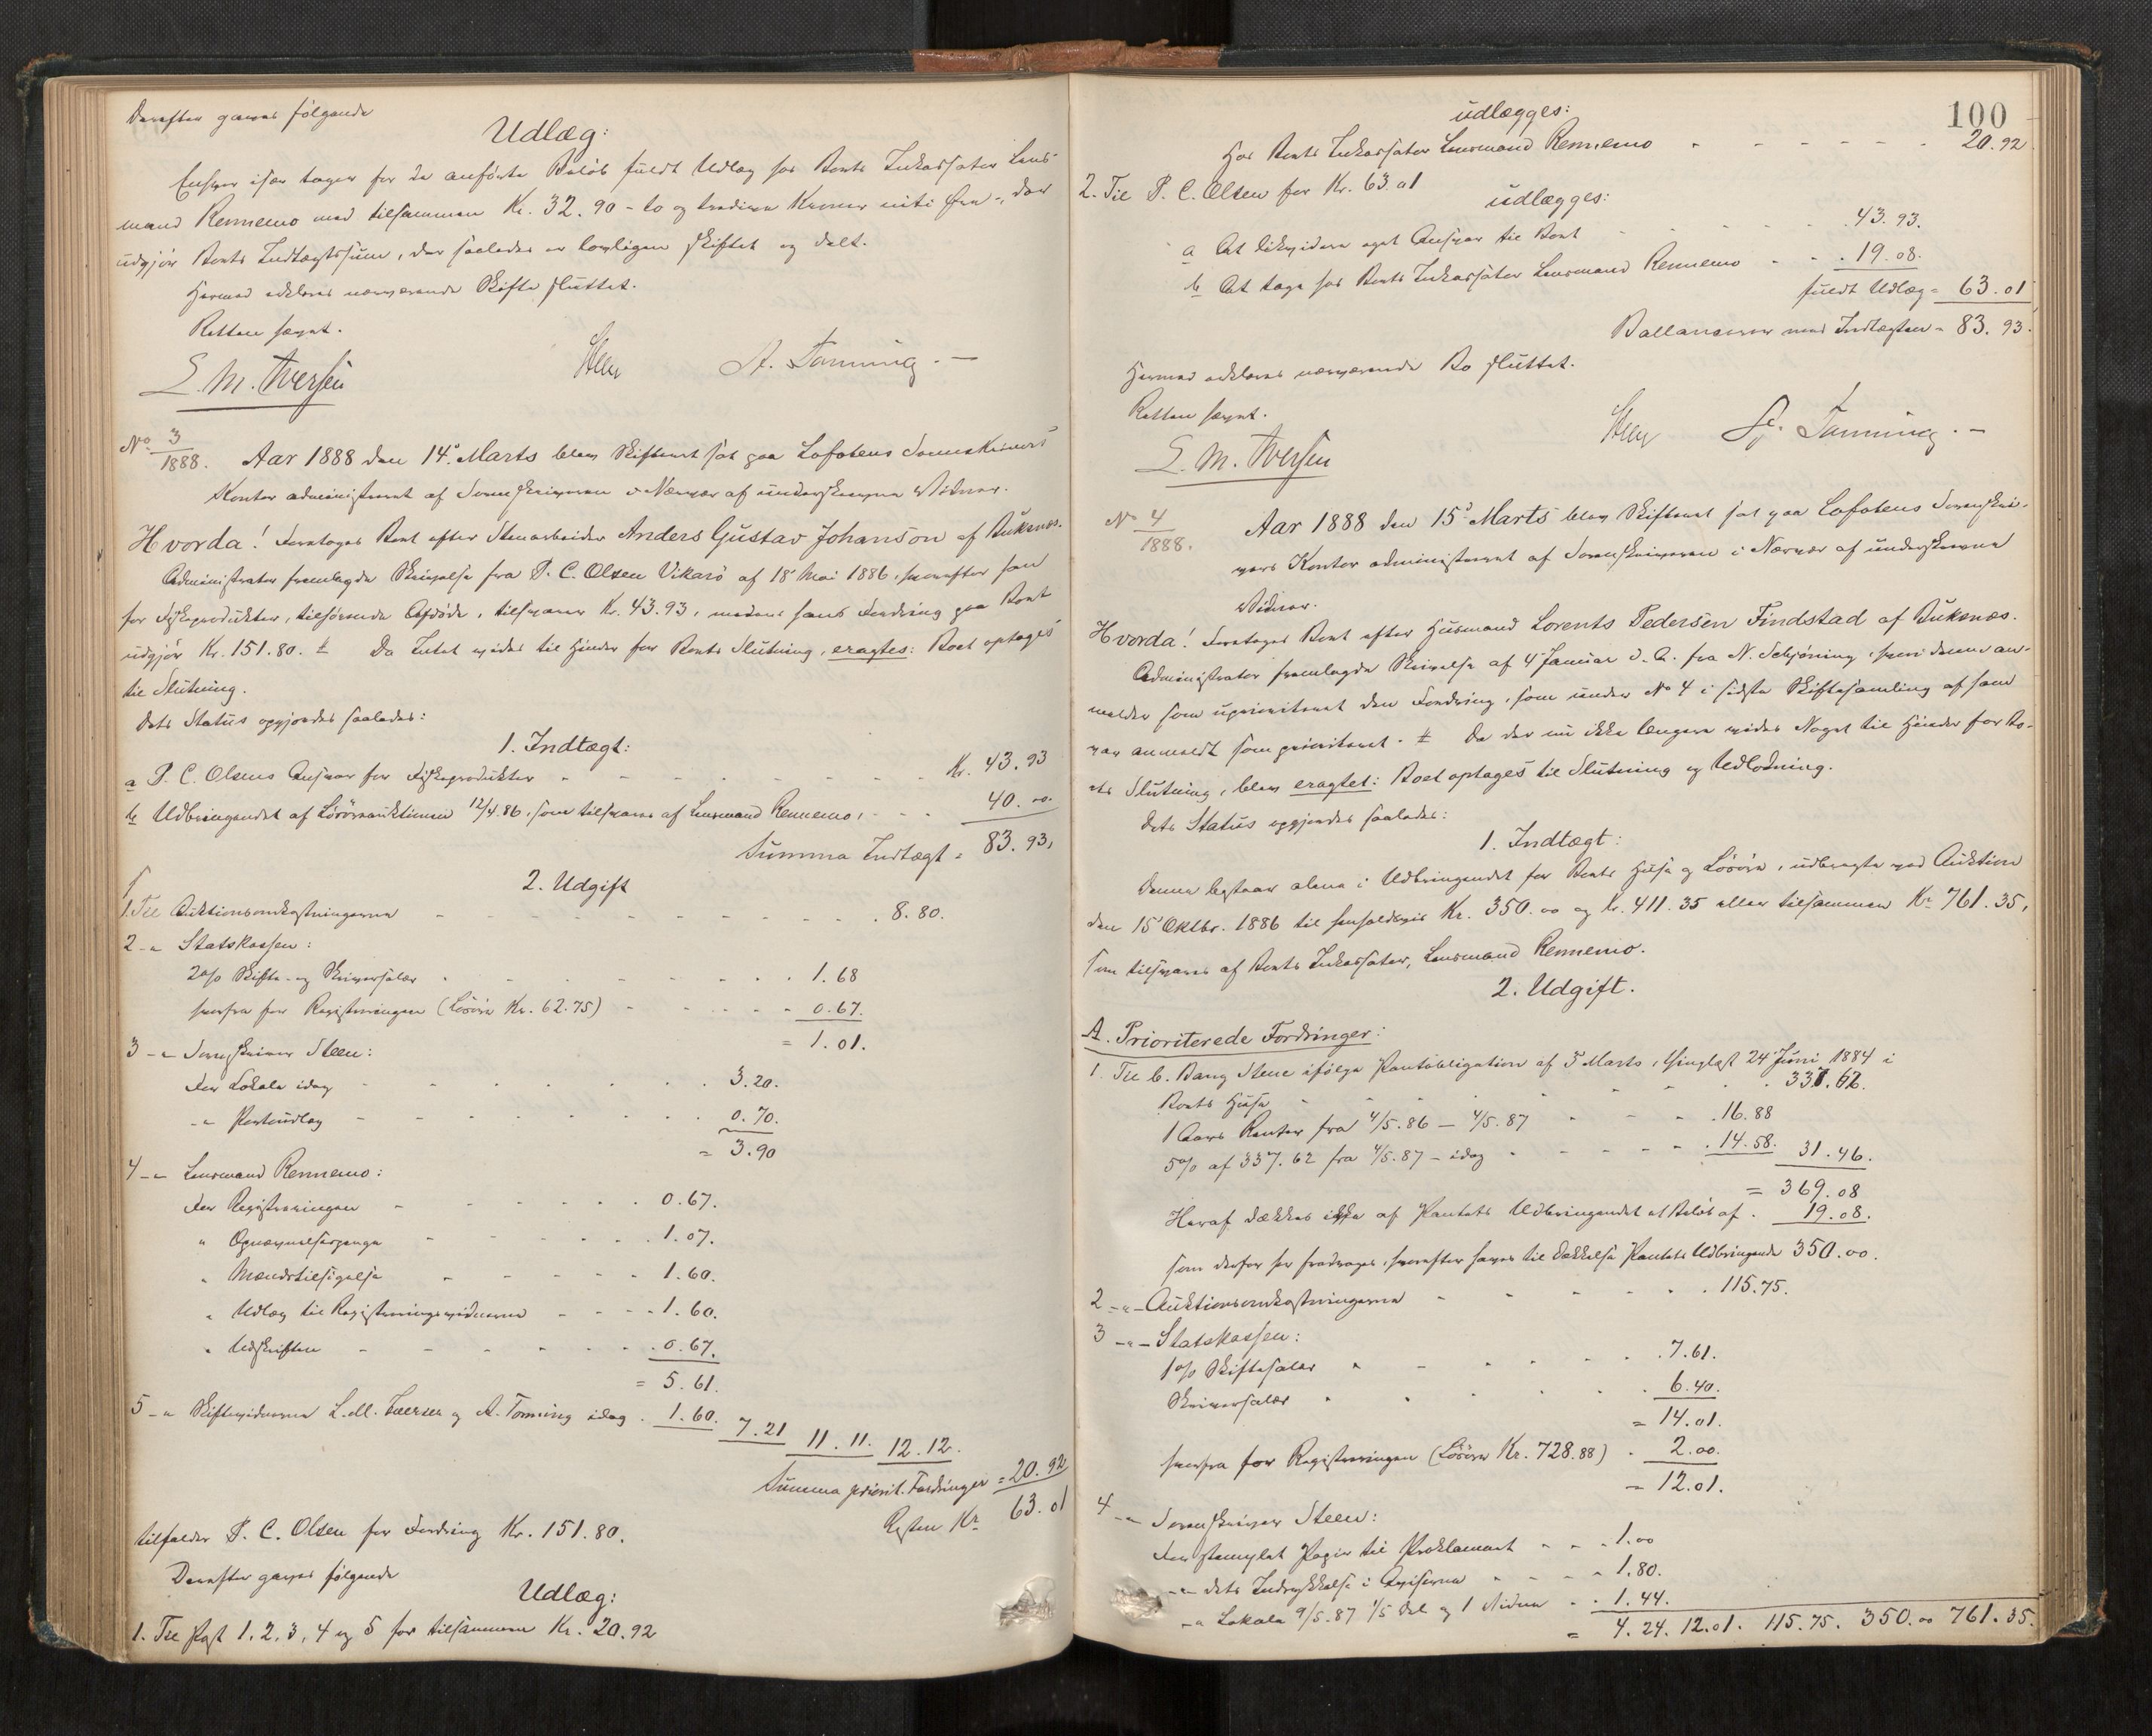 Derefter gaves følgende
Udlæg:
Enhver især tager for de anførte Beløb fuldt Udlæg hos Boets Inkassator Lens-
mand Rennemo med tilsammen Kr. 32.90 - to og tredive Kroner niti Øre -, der
udgjør Boets Indtægtssum, der saaledes er lovligen skiftet og delt.
Hermed erklæres nærværende Skifte sluttet.
Retten hævet.
E. M. Iversen Steen A. Tonning. -
No 3/1888. Aar 1888 den 14de Marts blev Skifteret sat paa Lofotens Sorenskrivers
Kontor administreret af Sorenskriveren i Nærvær af underskrevne Vidner.
Hvorda! Foretoges Boet efter Stenarbeider Anders Gustav Johanson af Buksnæs.
Administrator fremlagde Skrivelse fra P. C. Olsen Vikarö af 18de Mai 1886, hvorefter han
for Fiskeprodukter, tilhørende Afdøde, tilsvarer Kr. 43.93, medens hans Fordring paa Boet
udgjør Kr. 151.80. # Da Intet vides til Hinder for Boets Slutning, eragtes: Boet optages
til Slutning.
Dets Status opgjordes saaledes:
1. Indtægt:
a P. C. Olsens Ansvar for Fiskeprodukter - - - Kr. 43.93
b Udbringendet af Løsøreauktionen 12/4.86, som tilsvares af Lensmand Rennemo, - - 40.00.
Summa Indtægt = 83.93,
2. Udgift
1. Til Auktionsomkostningerne - - - 8.80.
2 -"- Statskassen:
2% Skifte- og Skriversalær - - - 1.68
herfra for Registreringen (Løsøre Kr. 62.75) - - - 0.67.
= 1.01.
3 -"- Sorenskriver Steen:
For Lokale idag - - - 3.20.
-"- Portoudlæg - - - 0.70.
= 3.90
4 -"- Lensmand Rennemo:
For Registreringen - - - 0.67.
" Opnævnelsespenge - - - 1.07.
" Mændstilsigelse - - - 1.60.
" Udlæg til Registreringsvidnerne - - - 1.60.
" Udskriften - - - 0.67.
= 5.61.
5 -"- Skiftevidnerne E. M. Iversen og A. Tonning idag . 1.60. 7.21 11.11. 12.12.
Summa priorit. Fordringer = 20.92
Resten Kr. 63.01
tilfalder P. C. Olsen for Fordring Kr. 151.80.
Derefter gaves følgende
Udlæg:
1. Til Post 1, 2, 3, 4 og 5 for tilsammen Kr. 20.92
100
udlægges:
Hos Boets Inkassator Lensmand Rennemo - - - 20.92
2. Til P. C. Olsen for Kr. 63.01
udlægges:
a At likvidere eget Ansvar til Boet - - - 43.93.
b At tage hos Boets Inkassator Lensmand Rennemo - - . 19.08.
fuldt Udlæg = 63.01
Ballancerer med Indtægten = 83.93.
Hermed erklæres nærværende Bo sluttet.
Retten hævet.
E. M. Iversen Steen A. Tonning. -
No 4/1888. Aar 1888 den 15de Marts blev Skifteret sat paa Lofotens Sorenskri-
vers Kontor administreret af Sorenskriveren i Nærvær af underskrevne
Vidner.
Hvorda! Foretoges Boet efter Husmand Lorents Pedersen Findstad af Buksnæs.
Administrator fremlagde Skrivelse af 4de Januar d. A. fra N. Schjöning, hvori denne an-
melder som uprioriteret den Fordring, som under No 4 i sidste Skiftesamling af ham
var anmeldt som prioriteret. # Da der nu ikke længere vides Noget til Hinder for Bo-
ets Slutning, blev eragtet: Boet optages til Slutning og Udlodning.
Dets Status opgjordes saaledes:
1. Indtægt:
Denne bestaar alene i Udbringendet for Boets Huse og Løsøre, udbragte ved Auktion
den 15de Oktbr. 1886 til henholdsvis Kr. 350.00 og Kr. 411.35 eller tilsammen Kr. 761.35,
som tilsvares af Boets Inkassator, Lensmand Rennemo.
2. Udgift.
A. Prioriterede Fordringer:
1. Til C. Bang Steen ifølge Pantobligation af 5 Marts, thinglæst 24de Juni 1884 i
Boets Huse - - - 337.62.
1 Aars Renter fra 4/5.86 - 4/5.87 - - - .16.88
5% af 337.62 fra 4/5.87 - idag - - - .14.58. 31.46.
= 369.08
Heraf dækkes ikke af Pantets Udbringendet et Beløb af . 19.08.
som derfor her fradrages, hvorefter haves til Dækkelse Pantets Udbringende 350.00.
2 -"- Auktionsomkostningerne - - - 115.75.
3 -"- Statskassen:
1% Skiftesalær - - - 7.61.
Skriversalær - - - 6.40.
= 14.01.
herfra for Registreringen (Løsøre Kr. 728.88) . 2.00.
= 12.01.
4 -"- Sorenskriver Steen:
For stemplet Papir til Proklamaet - - - 1.00
-"- dets Indrykkelse i Aviserne - - - 1.80.
-"- Lokale 9/5.87 1/5 Del og 1 Vidne - . 1.44.
= 4.24. 12.01. 115.75. 350.00 761.35.